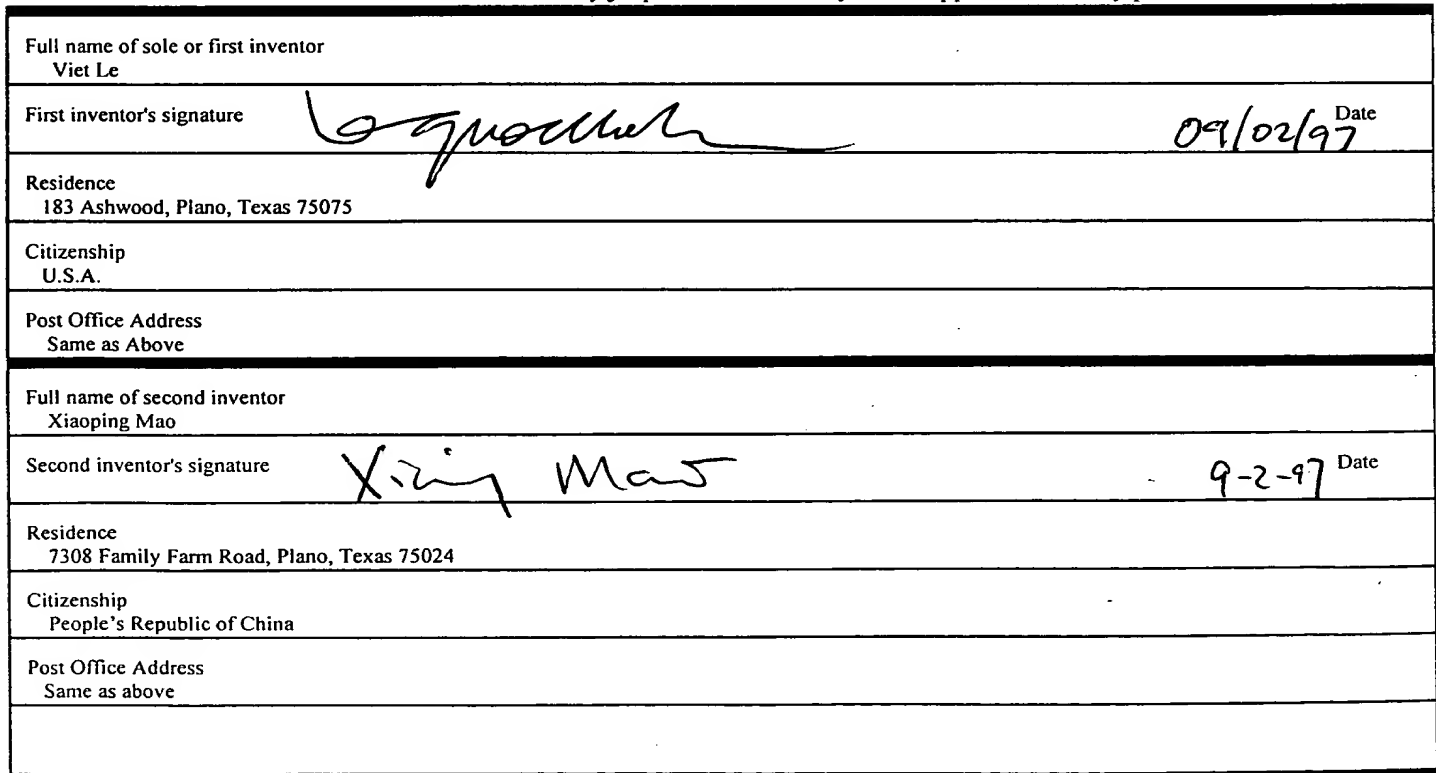 Full name of sole or first inventor
Viet Le
First inventor's signature
09/02/97 Date
Residence
183 Ashwood, Plano, Texas 75075
Citizenship
U.S.A.
Post Office Address
Same as Above
Full name of second inventor
Xiaoping Mao
Second inventor's signature Mao
9-2-97 Date
Residence
7308 Family Farm Road, Plano, Texas 75024
Citizenship
People's Republic of China
Post Office Address
Same as above